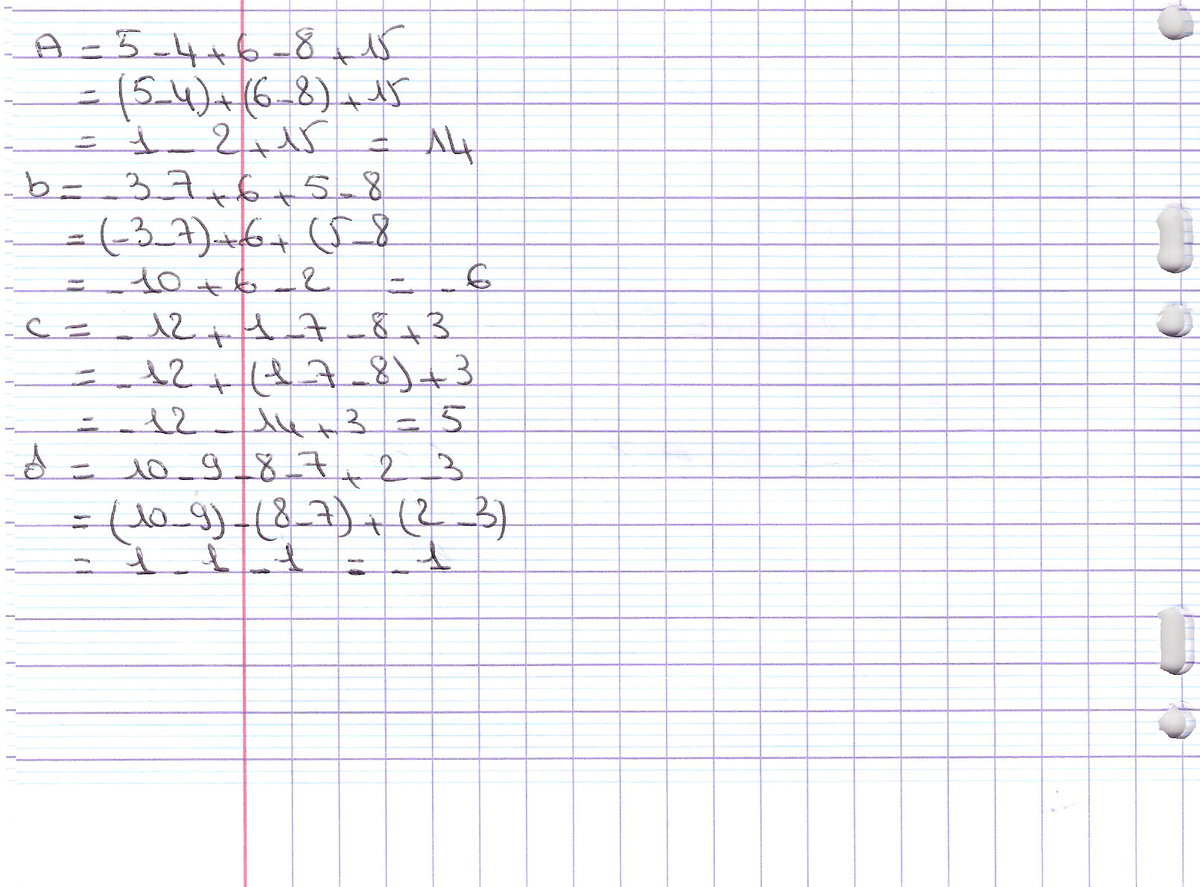 A = 5 - 4 + 6 - 8 + 15
= (5 - 4) + (6 - 8) + 15
= 1 - 2 + 15 = 14
b = - 3 - 7 + 6 + 5 - 8
= (- 3 - 7) + 6 + (5 - 8
= - 10 + 6 - 2 = - 6
c = - 12 + 1 - 7 - 8 + 3
= - 12 + (1 - 7 - 8) + 3
= - 12 - 14 + 3 = 5
d = 10 - 9 - 8 - 7 + 2 - 3
= (10 - 9) - (8 - 7) + (2 - 3)
= 1 - 1 - 1 = - 1